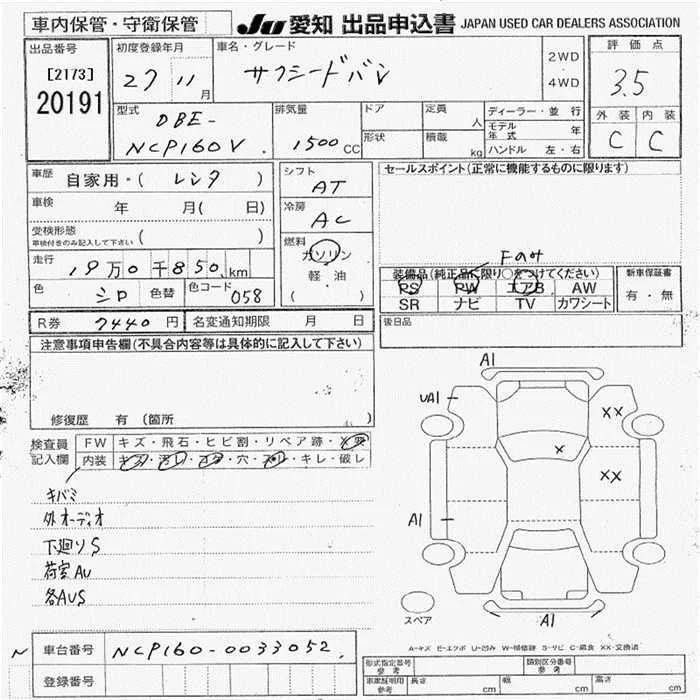 車内保管・守衛保管
JU 愛知 出品申込書 JAPAN USED CAR DEALERS ASSOCIATION
出品番号
[2173]
20191
初度登録年月
27 11 月
車名・グレード
サクシードバン
2WD
・
4WD
評価点
3.5
外装 内装
C C
型式
DBE-
NCP160V
排気量
1500 CC
ドア
形状
定員
人
積載
kg
ディーラー・並行
モデル年式 年
ハンドル 左・右
車歴 自家用・( レンタ )
車検 年 月( 日)
受検形態
車検付きのみ記入して下さい ( )
走行 19万0千850 km
色 シロ 色替 色コード 058
R券 7440 円 名変通知期限 月 日
シフト
AT
冷房
AC
燃料
ガソリン
軽・油
( )
セールスポイント(正常に機能するものに限ります)
Fのみ
装備品(純正品に限り○をつけてください)
PS PW エアB AW
SR ナビ TV カワシート
新車保証書
有・無
後日品
注意事項申告欄(不具合内容等は具体的に記入して下さい)
修復歴 有 (箇所 )
検査員記入欄
FW キズ・飛石・ヒビ割・リペア跡・×要
内装 キズ・汚レ・コゲ・穴・スリ・キレ・破レ
キバミ
外オーディオ
下廻りS
荷室AU
各AUS
A1
UA1
XX
X
XX
A1
A1
スペア
A-キズ E-エクボ U-凹み W-補修跡 S-サビ C-腐食 XX-交換済
N 車台番号 NCP160-0033052
登録番号
形式指定番号 参考
類別区分番号 参考
車庫証明用 参考 長さ cm 幅 cm 高さ cm